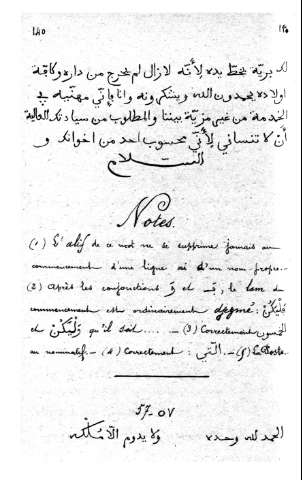 ١٤٥
لك بريّة بخطّ يده لأنّه لازال لم يخرج من داره وكافة
اولاده يحمدون الله ويشكرونه وانا بأتي مهنّية في
الخدمة من غير مزيّة بيننا والمطلوب من سيادتك العالية
أن لا تنساني لأنّي محسوب احد من اخوانك و
السلام
Notes.
(1) L'alif de ce mot ne se supprime jamais au
commencement d'une ligne ni d'un nom propre.
(2) Après les conjonctions وَ et فَـ, le lam de
commencement est ordinairement djezmé: فَلْيَكُنْ
et وَلْيَكُنْ qu'il soit .... - (3) Correctement
au nominatif. - (4) Correctement: الّتي. - (5) La Poste
57-07
الحمد لله وحده ولا يدوم الّا مُلكه